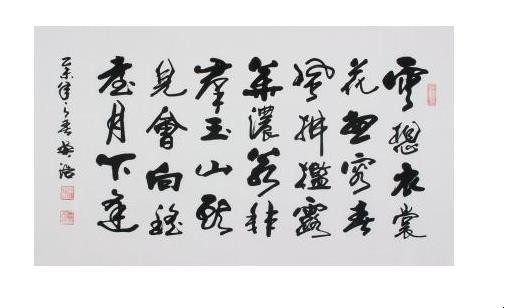 雲想衣裳
花想容春
風拂檻露
華濃若非
羣玉山頭
見會向瑤
臺月下逢
乙未年之春浩